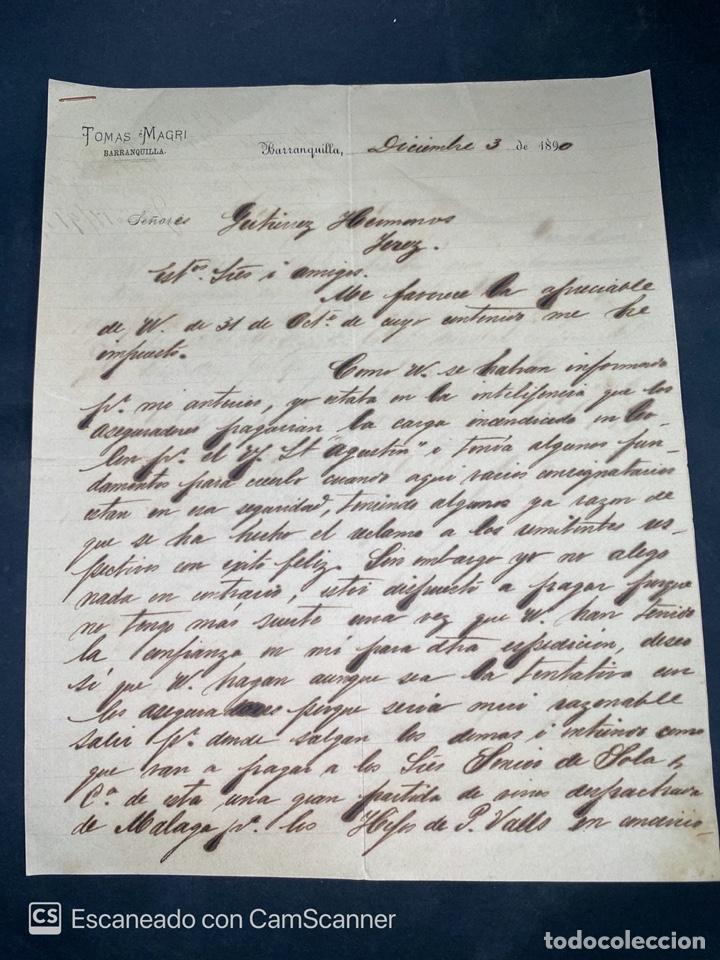 TOMAS MAGRI
BARRANQUILLA.
Barranquilla, Diciembre 3 de 1890
Señores Gutierrez Hermanos
Jerez.
Est.os Sres i amigos.
Me favorece la apreciable
de W. de 31 de Oct.e de cuyo contenido me he
impuesto.
Como W. se habran informado
pr. mi anterior, yo estaba en la intelijencia que los
aseguradores pagarian la carga incendiada en Co-
lon pr. el St "Agustin" i tenia algunos fun-
damentos para creerlo cuando aqui varios consignatarios
estan en esa seguridad, teniendo algunos ya razon de
que se ha hecho el reclamo a los remitentes res-
pectivos con exito feliz. Sin embargo yo no alego
nada en contrario, estoi dispuesto a pagar porque
no tengo mas suerte una vez que W. han tenido
la confianza en mi para otra espedicion, deseo
sí que W. hagan aunque sea la tentativa con
los aseguradores porque seria mui razonable
salir pr. donde salgan los demas i entiendo como
que van a pagar a los Sres Senior de Sola &
Ca. de esta una gran partida de vinos despachada
de Malaga pr. los Hijos de P. Valls en
CS Escaneado con CamScanner
todocoleccion